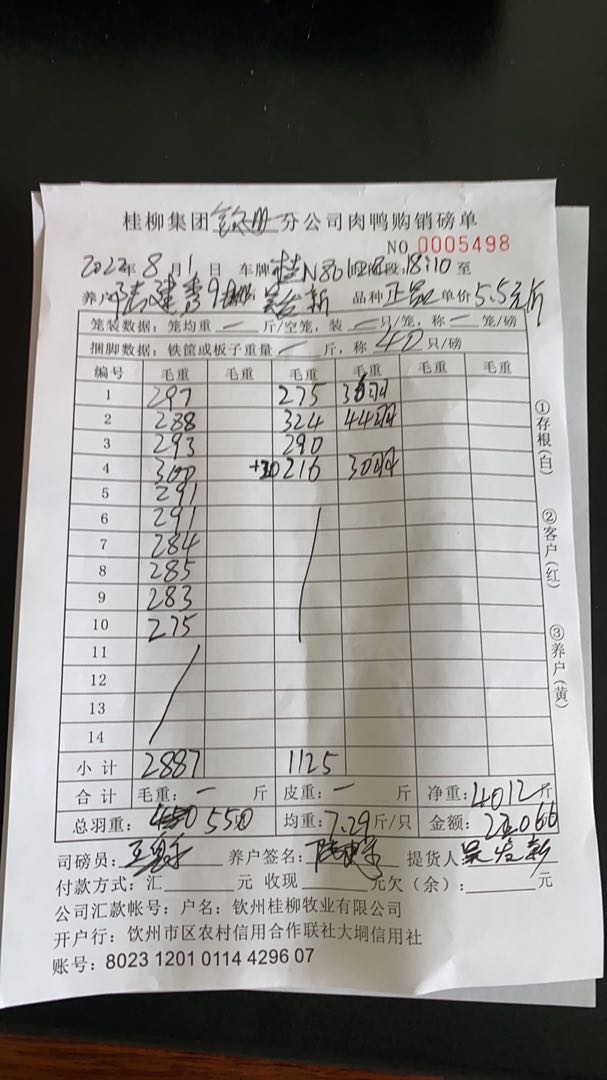 桂柳集团钦州分公司肉鸭购销磅单
NO 0005498
2022年8月1日 车牌桂N 时段:18:10至
养户 陆建 新 品种 正品 单价5.5元/斤
笼装数据:笼均重 — 斤/空笼,装 — 只/笼,称 — 笼/磅
捆脚数据:铁筐或板子重量 — 斤,称 40 只/磅
编号 毛重 毛重 毛重 毛重 毛重 毛重
1 297 275
2 288 324 44羽
3 293 290
4 300 +30 216 30羽
5 291
6 291
7 284
8 285
9 283
10 275
11
12
13
14
小计 2887 1125
合计 毛重:— 斤 皮重:— 斤 净重:4012斤
总羽重:550 均重:7.29斤/只 金额:22066
司磅员: 养户签名: 提货人 吴 新
付款方式:汇 元 收现 元欠(余): 元
公司汇款帐号:户名:钦州桂柳牧业有限公司
开户行:钦州市区农村信用合作联社大垌信用社
账号:8023 1201 0114 4296 07
①存根(白)
②客户(红)
③养户(黄)